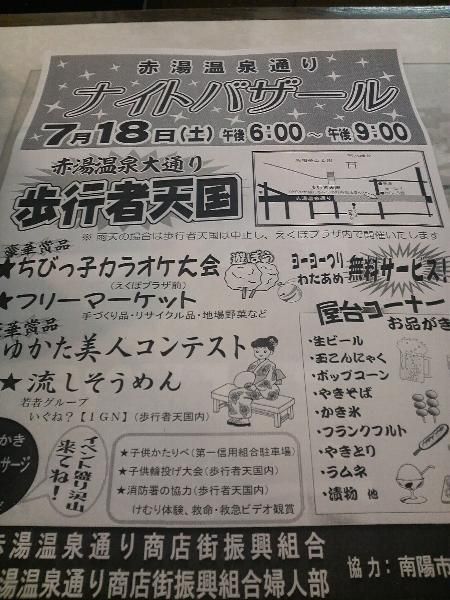 赤湯温泉通り
ナイトバザール
7月18日(土) 午後6:00～午後9:00
赤湯温泉大通り
歩行者天国
※ 雨天の場合は歩行者天国は中止し、えくぼプラザ内で開催いたします
豪華賞品
★ちびっ子カラオケ大会
(えくぼプラザ前)
遊ぼう
ヨーヨーつり
わたあめ
無料サービス!
★フリーマーケット
手づくり品・リサイクル品・地場野菜など
豪華賞品
ゆかた美人コンテスト
★流しそうめん
若者グループ
いぐね?【IGN】(歩行者天国内)
屋台コーナー
お品がき
・生ビール
・玉こんにゃく
・ポップコーン
・やきそば
・かき氷
・フランクフルト
・やきとり
・ラムネ
・漬物 他
かき
サージ
イベント盛り沢山
来てね!
★子供かたりべ(第一信用組合駐車場)
★子供輪投げ大会(歩行者天国内)
★消防署の協力(歩行者天国内)
けむり体験、救命・救急ビデオ観賞
赤湯温泉通り商店街振興組合
湯温泉通り商店街振興組合婦人部
協力:南陽市